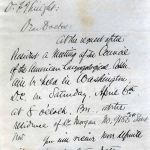 Dr. Knight:
Dear Doctor:
At the request of the
President a Meeting of the Council
of the American Laryngological Assn.
will be held in Washington,
D.C. on Saturday, April 6th
at 8 o'clock, P.m. at the
residence of Dr. Morgan No. 918 E St
N.W. You will receive more definite